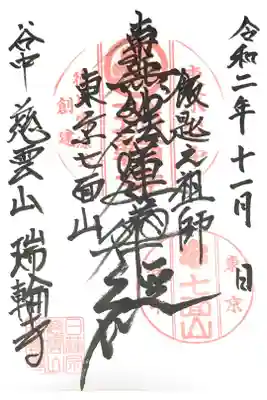 令和二年十一月 日
飯匙之祖師
南無妙法蓮華経
東京七面山
谷中 慈雲山 瑞輪寺
東京
七面山